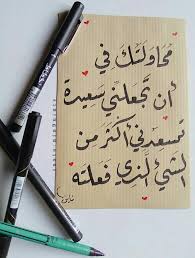 محاولتك في
أن تجعلني سعيدة
تسعدني أكثر من
الشي الذي فعلته